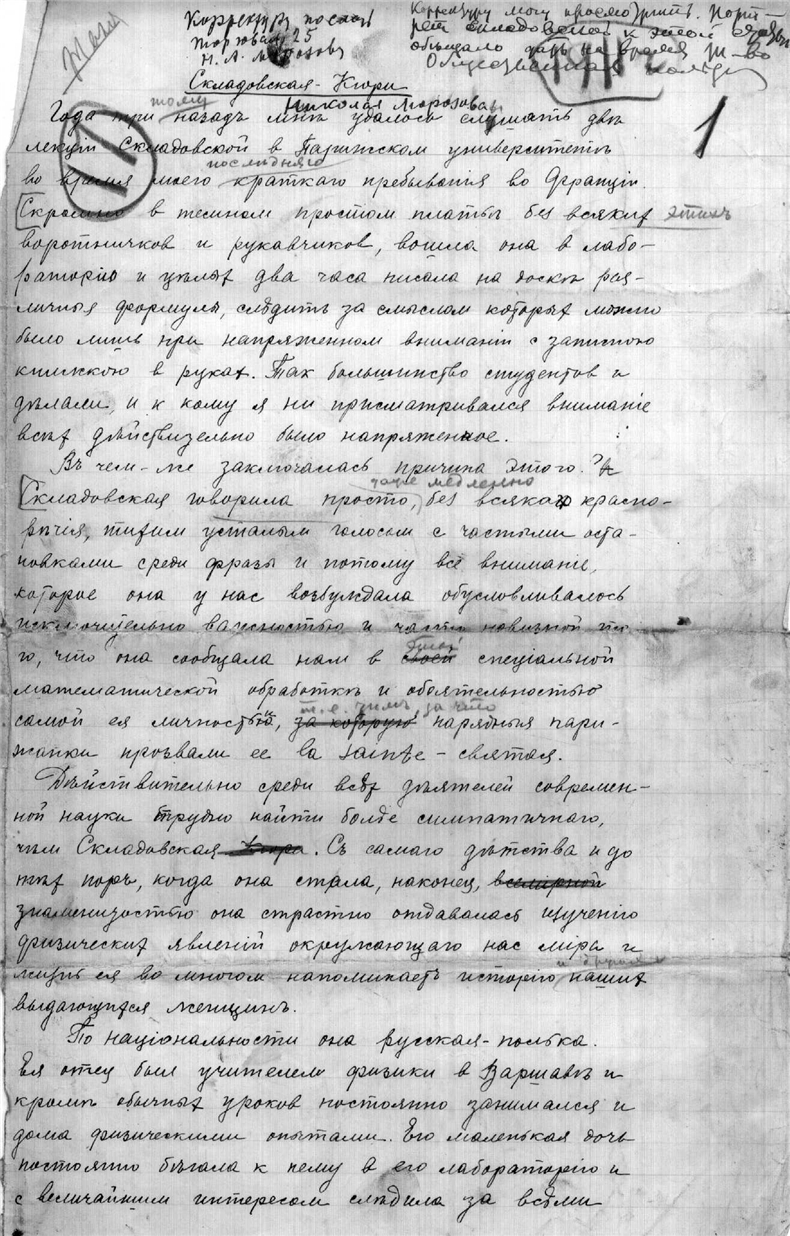 Корректуру послать
Торговая 25
Н. А. Морозову
Корректуру могу просмотреть. Порт-
рет Складовской к этой
обещало дать на время
Общественная польза
Складовская-Кюри
Николая Морозова
тому
Года три назадъ мнѣ удалось слушать двѣ
1
лекціи Складовской в Парижском университетѣ
послѣдняго
во время моего краткаго пребыванія во Франціи.
Скромно в темном простом платьѣ без всяких этихъ
воротничков и рукавчиков, вошла она в лабо-
раторію и цѣлых два часа писала на доскѣ раз-
личныя формулы, слѣдить за смыслом которых можно
было лишь при напряженном вниманіи с записною
книжкою в руках. Так большинство студентов и
дѣлали, и к кому я ни присматривался вниманіе
всѣх дѣйствительно было напряженное.
Въ чем-же заключалась причина этого?
даже медленно
Складовская говорила просто, без всякаго красно-
рѣчія, тихим усталым голосом с частыми оста-
новками среди фразы и потому всё вниманіе,
которое она у нас возбуждала обусловливалось
исключительно важностью и часто новизной то-
го, что она сообщала нам в своей спеціальной
математической обработкѣ и обоятельностью
т. е. чѣмъ, за что
самой ея личностью, за которую нарядныя пари-
жанки прозвали ее la sainte – святая.
Дѣйствительно среди всѣх дѣятелей современ-
ной науки трудно найти болѣе симпатичнаго,
чѣм Складовская Кюри. Съ самаго дѣтства и до
тѣх поръ, когда она стала, наконец, всемірной
знаменитостью она страстно отдавалась изученію
физических явленій окружающаго нас міра и
и других
жизнь ея во многом напоминаетъ исторію наших
выдающихся женщинъ.
По національности она русская-полька.
Ея отец был учителем физики в Варшавѣ и
кромѣ обычных уроков постоянно занимался и
дома физическими опытами. Его маленькая дочь
постоянно бѣгала к нему в его лабораторію и
с величайшим интересом слѣдила за всѣми